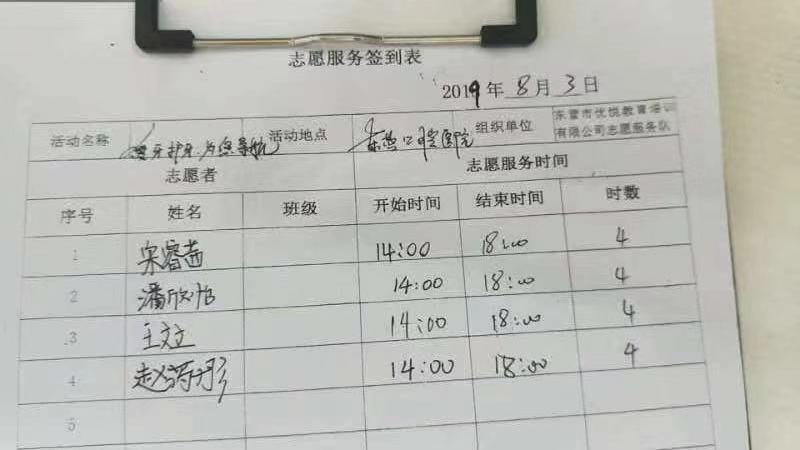 志愿服务签到表
2019年8月3日
活动名称 爱牙护牙 为您导航 活动地点 东营口腔医院 组织单位 东营市优悦教育培训有限公司志愿服务队
志愿者 志愿服务时间
序号 姓名 班级 开始时间 结束时间 时数
1 宋睿茜 14:00 18:00 4
2 潘欣怡 14:00 18:00 4
3 王文立 14:00 18:00 4
4 赵 彤 14:00 18:00 4
5